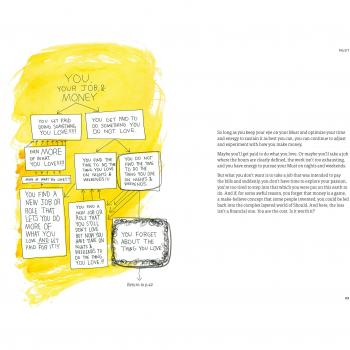 MUST
YOU,
YOUR JOB, &
MONEY
YOU GET PAID
DOING SOMETHING
YOU LOVE!!!!
YOU GET PAID TO
DO SOMETHING YOU
DO NOT LOVE.
EVEN MORE
OF WHAT
YOU LOVE!!!!
YOU FIND THE
TIME TO DO THE
THING YOU LOVE
ON NIGHTS &
WEEKENDS!!!
YOU DO NOT
FIND THE TIME
TO DO THE
THING YOU LOVE
ON NIGHTS &
WEEKENDS
YOU FIND A
NEW JOB OR
ROLE THAT
LETS YOU DO
MORE OF
WHAT YOU
LOVE AND GET
PAID FOR IT!!!
YOU FIND A
NEW JOB OR
ROLE THAT
YOU STILL
DON'T LOVE
BUT NOW YOU
HAVE TIME ON
NIGHTS &
WEEKENDS TO
DO THE THING
YOU LOVE!!
YOU FORGET
ABOUT THE
THING YOU LOVE
Return to p.
So long as you keep your eye on your Must and optimize your time
and energy to sustain it as best you can, you can continue to adjust
and experiment with how you make money.
Maybe you'll get paid to do what you love. Or maybe you'll take a job
where the hours are clearly defined, the work isn't too exhausting,
and you have energy to pursue your Must on nights and weekends.
But what you don't want is to take a job that was intended to pay
the bills and suddenly you don't have time to explore your passion,
you're too tired to step into that which you were put on this earth to
do. And if, for some awful reason, you forget that money is a game,
a make-believe concept that some people invented, you could be led
back into the complex layered world of Should. And here, the loss
isn't a financial one. You are the cost. Is it worth it?